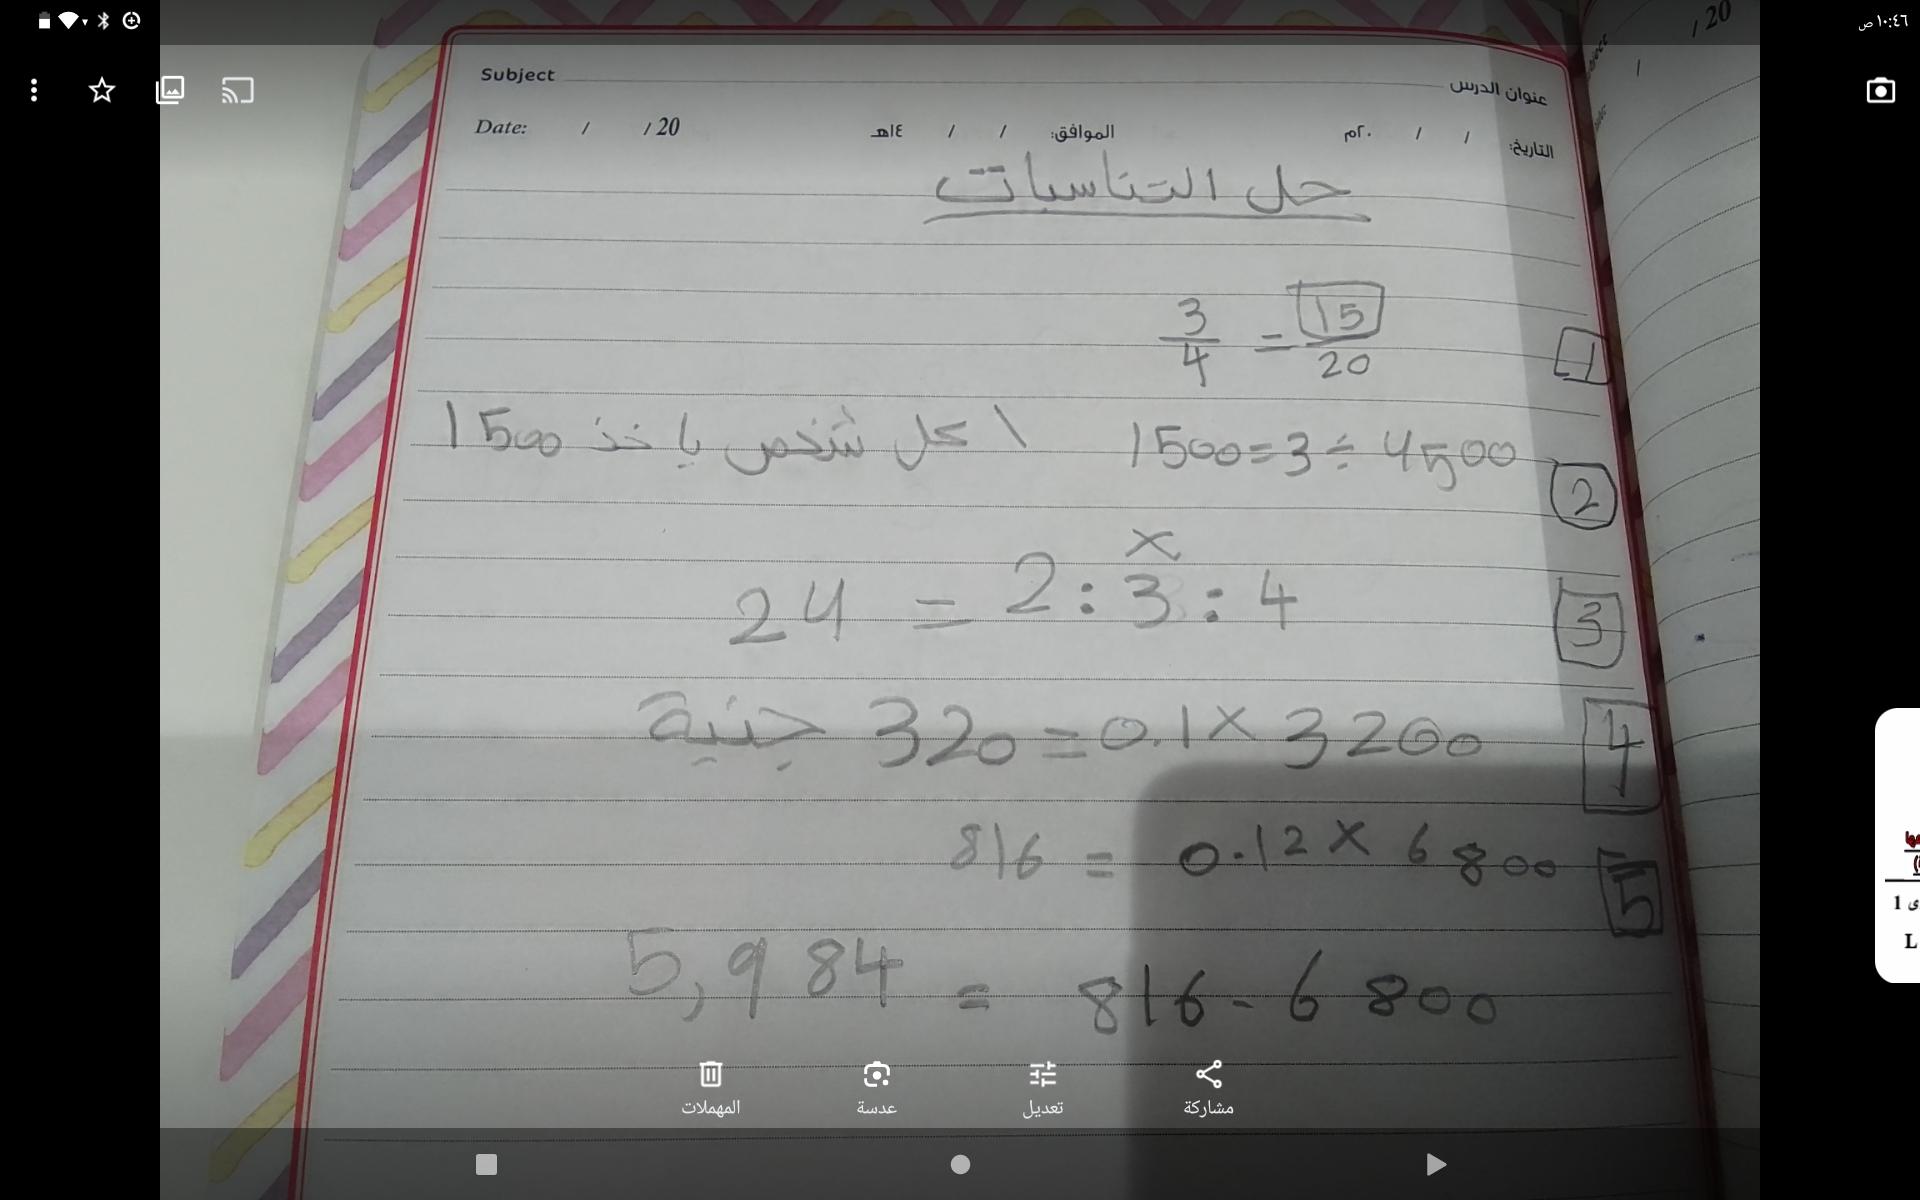 ١٠:٤٦ ص
/ 20
Subject عنوان الدرس
Date: / / 20 الموافق: / / ١٤هـ التاريخ: / / ٢٠م
حل التناسبات
1 3/4 = 15/20
2 1500=3÷4500 \ كل شخص ياخذ 1500
x
3 24 = 2:3:4
4 3200 × 0.1 = 320 جنية
5 816 = 0.12 × 6800
5,984 = 816 - 6800
المهملات
عدسة
تعديل
مشاركة